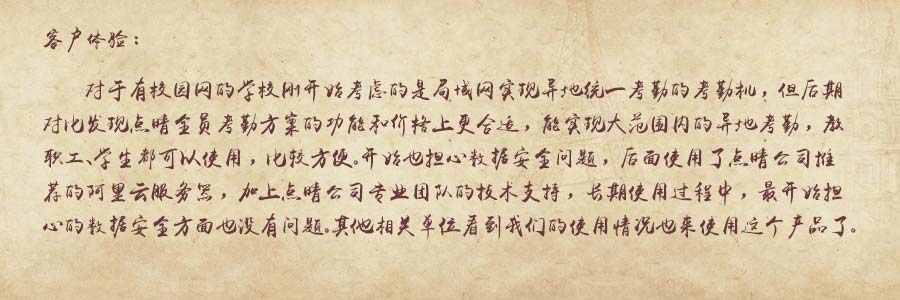 客户体验：
对于有校园网的学校刚开始考虑的是局域网实现异地统一考勤的考勤机，但后期
对比发现点晴全员考勤方案的功能和价格上更合适，能实现大范围内的异地考勤，教
职工、学生都可以使用，比较方便。开始也担心数据安全问题，后面使用了点晴公司推
荐的阿里云服务器，加上点晴公司专业团队的技术支持，长期使用过程中，最开始担
心的数据安全方面也没有问题。其他相关单位看到我们的使用情况也来使用这个产品了。